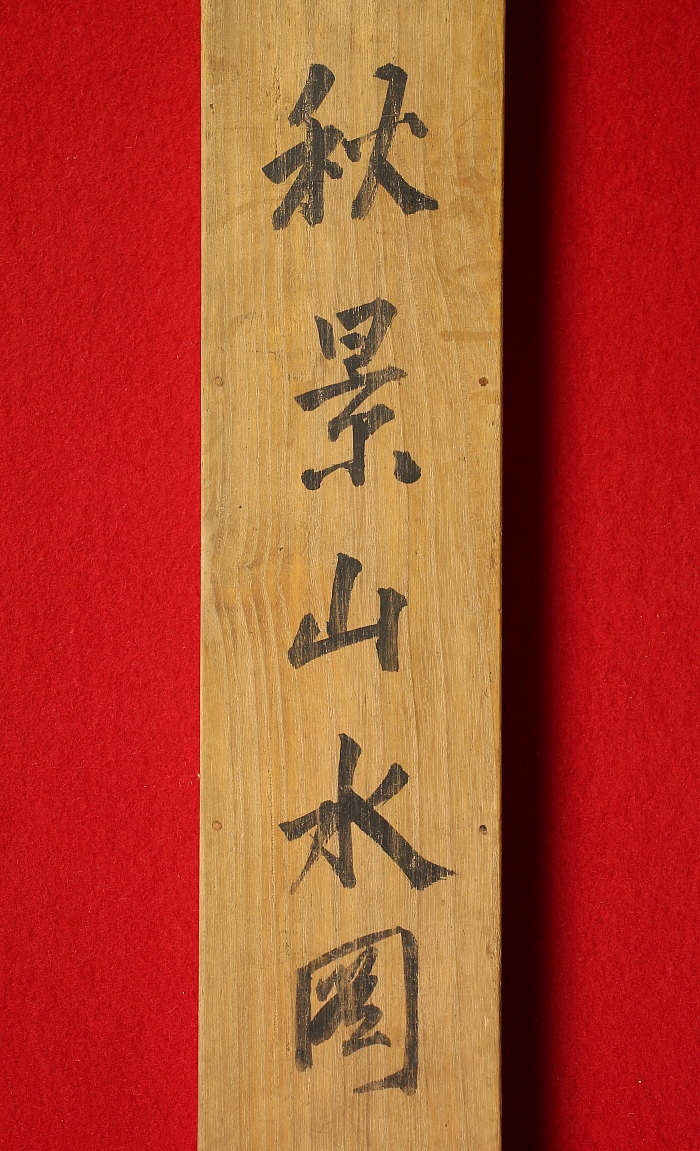 秋景山水図